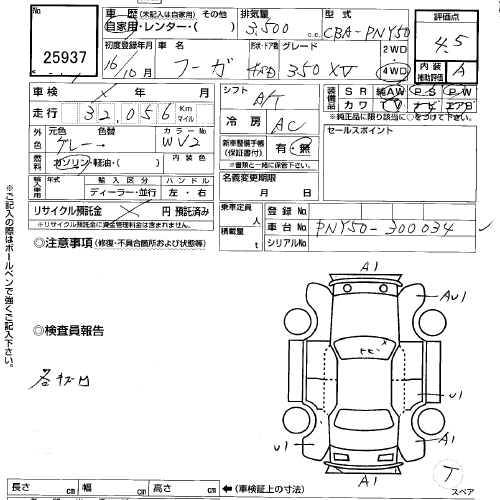 No.
25937
車歴 (未記入は自家用) その他
自家用・レンター・( )
排気量
3,500 c.c.
型式
CBA-PNY50
評価点
4.5
初度登録年月
16年10月
車名
フーガ
形状・ドア数
4HD
グレード
350XV
2WD
4WD
内装
補助評価
A
車検 年 月
走行 32,056 Km マイル
シフト
A/T
装備品
SR 純AW PS PW
カワ TV エアB
※純正品に限り該当に○をして下さい。
外色
元色 色替 カラーNo
グレー→ WV2
燃料
ガソリン・軽油・( )
内装色
冷房
AC
セールスポイント
新車整備手帳
(保証書付)
有・無
※書類と一緒に保管下さい。
輸入車用
年式 輸入区分 ハンドル
ディーラー・並行 左・右
名義変更期限
月 日
リサイクル預託金 円 預託済み
※リサイクル預託金に資金管理料金は含まれません。
乗車定員 人
積載量 t
登録No
車台No PNY50-300034
シリアルNo
◎注意事項 (修復・不具合箇所および状態等)
※ご記入の際はボールペンで強くご記入下さい。
A1
AU1
◎検査員報告
各キズ有
U1
U1
A1
A1
T
スペア
長さ cm 幅 cm 高さ cm ←(車検証上の寸法)